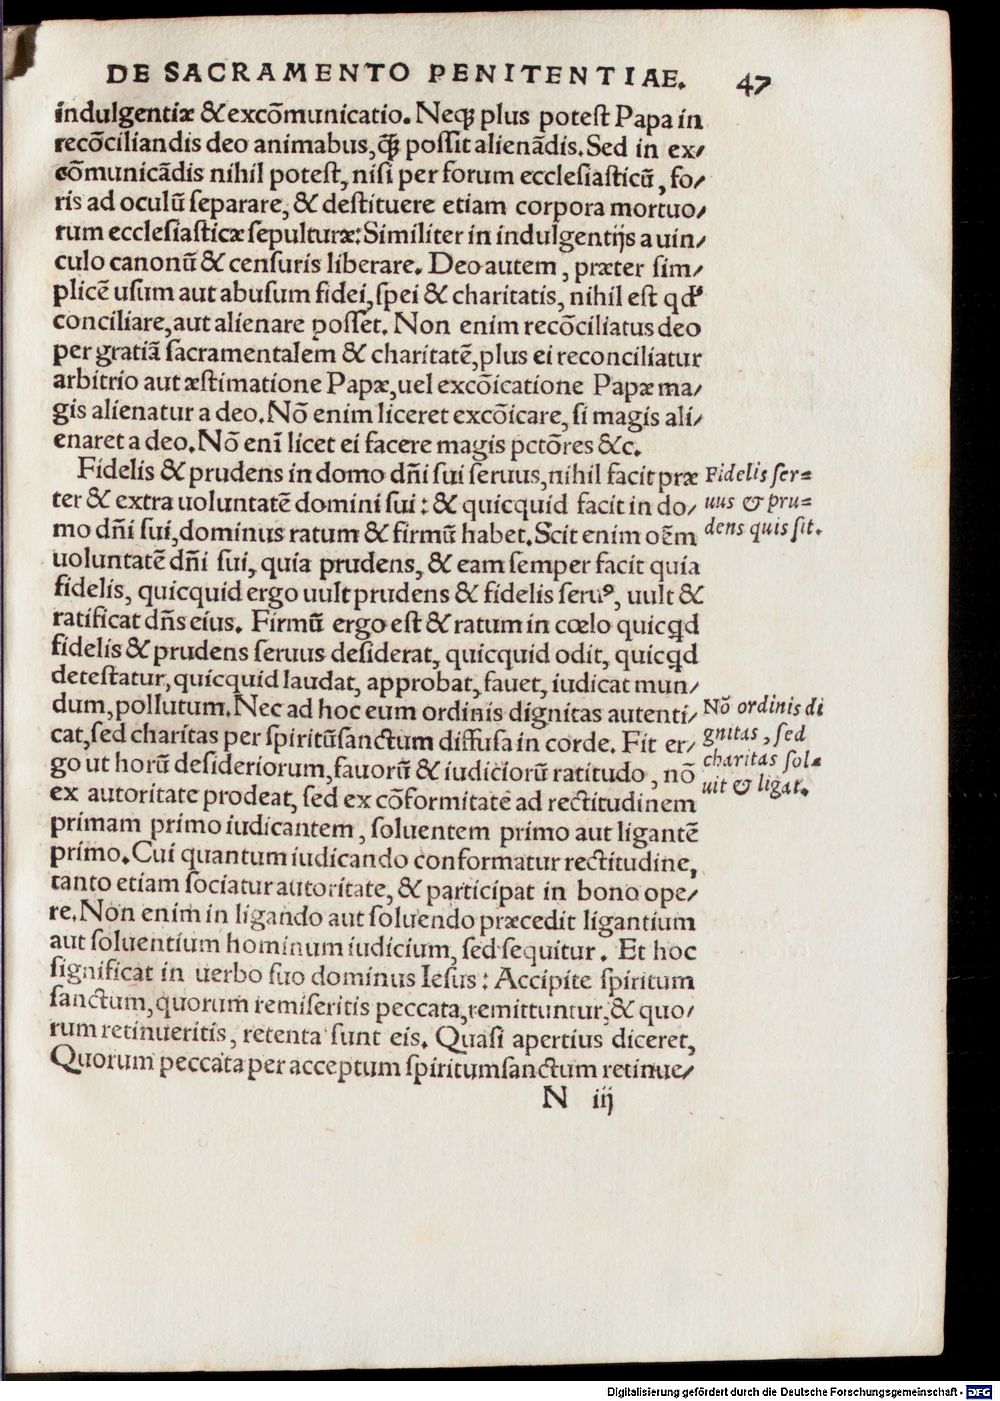 DE SACRAMENTO PENITENTIAE. 47
indulgentiæ & excōmunicatio. Neqꝫ plus poteſt Papa in
recōciliandis deo animabus, q̄ꝫ poſſit alienādis. Sed in ex/
cōmunicādis nihil poteſt, niſi per forum eccleſiaſticū, fo/
ris ad oculū ſeparare, & deſtituere etiam corpora mortuo/
rum eccleſiaſticæ ſepulturæ: Similiter in indulgentijs a uin/
culo canonū & cenſuris liberare. Deo autem, præter ſim/
plicē uſum aut abuſum fidei, ſpei & charitatis, nihil eſt qd'
conciliare, aut alienare poſſet. Non enim recōciliatus deo
per gratiā ſacramentalem & charitatē, plus ei reconciliatur
arbitrio aut æſtimatione Papæ, uel excōicatione Papæ ma/
gis alienatur a deo. Nō enim liceret excōicare, ſi magis ali/
enaret a deo. Nō enī licet ei facere magis pctōres &c.
Fidelis & prudens in domo dñi ſui ſeruus, nihil facit præ
ter & extra uoluntatē domini ſui: & quicquid facit in do/
mo dñi ſui, dominus ratum & firmū habet. Scit enim oēm
uoluntatē dñi ſui, quia prudens, & eam ſemper facit quia
fidelis, quicquid ergo uult prudens & fidelis ſeruꝰ, uult &
ratificat dñs eius. Firmū ergo eſt & ratum in cœlo quicꝗd
fidelis & prudens ſeruus deſiderat, quicquid odit, quicꝗd
deteſtatur, quicquid laudat, approbat, fauet, iudicat mun/
dum, pollutum. Nec ad hoc eum ordinis dignitas autenti/
cat, ſed charitas per ſpiritūſanctum diffuſa in corde. Fit er/
go ut horū deſideriorum, fauorū & iudiciorū ratitudo, nō
ex autoritate prodeat, ſed ex cōformitate ad rectitudinem
primam primo iudicantem, ſoluentem primo aut ligantē
primo. Cui quantum iudicando conformatur rectitudine,
tanto etiam ſociatur autoritate, & participat in bono ope/
re. Non enim in ligando aut ſoluendo præcedit ligantium
aut ſoluentium hominum iudicium, ſed ſequitur. Et hoc
ſignificat in uerbo ſuo dominus Ieſus: Accipite ſpiritum
ſanctum, quorum remiſeritis peccata, remittuntur, & quo/
rum retinueritis, retenta ſunt eis. Quaſi apertius diceret,
Quorum peccata per acceptum ſpiritumſanctum retinue/
N iij
Fidelis ſer=
uus & pru=
dens quis ſit.
Nō ordinis di
gnitas, ſed
charitas ſol=
uit & ligat.
Digitalisierung gefördert durch die Deutsche Forschungsgemeinschaft - DFG